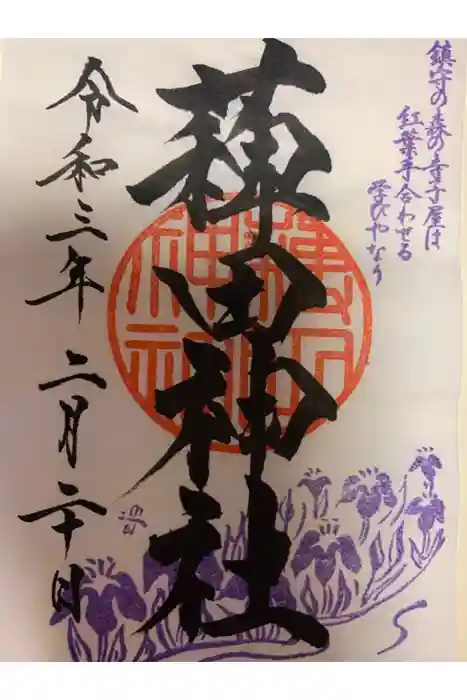 鎮守の森の寺子屋は
紅葉手合わせる
学びやなり
蒲田神社
令和三年 二月二十日